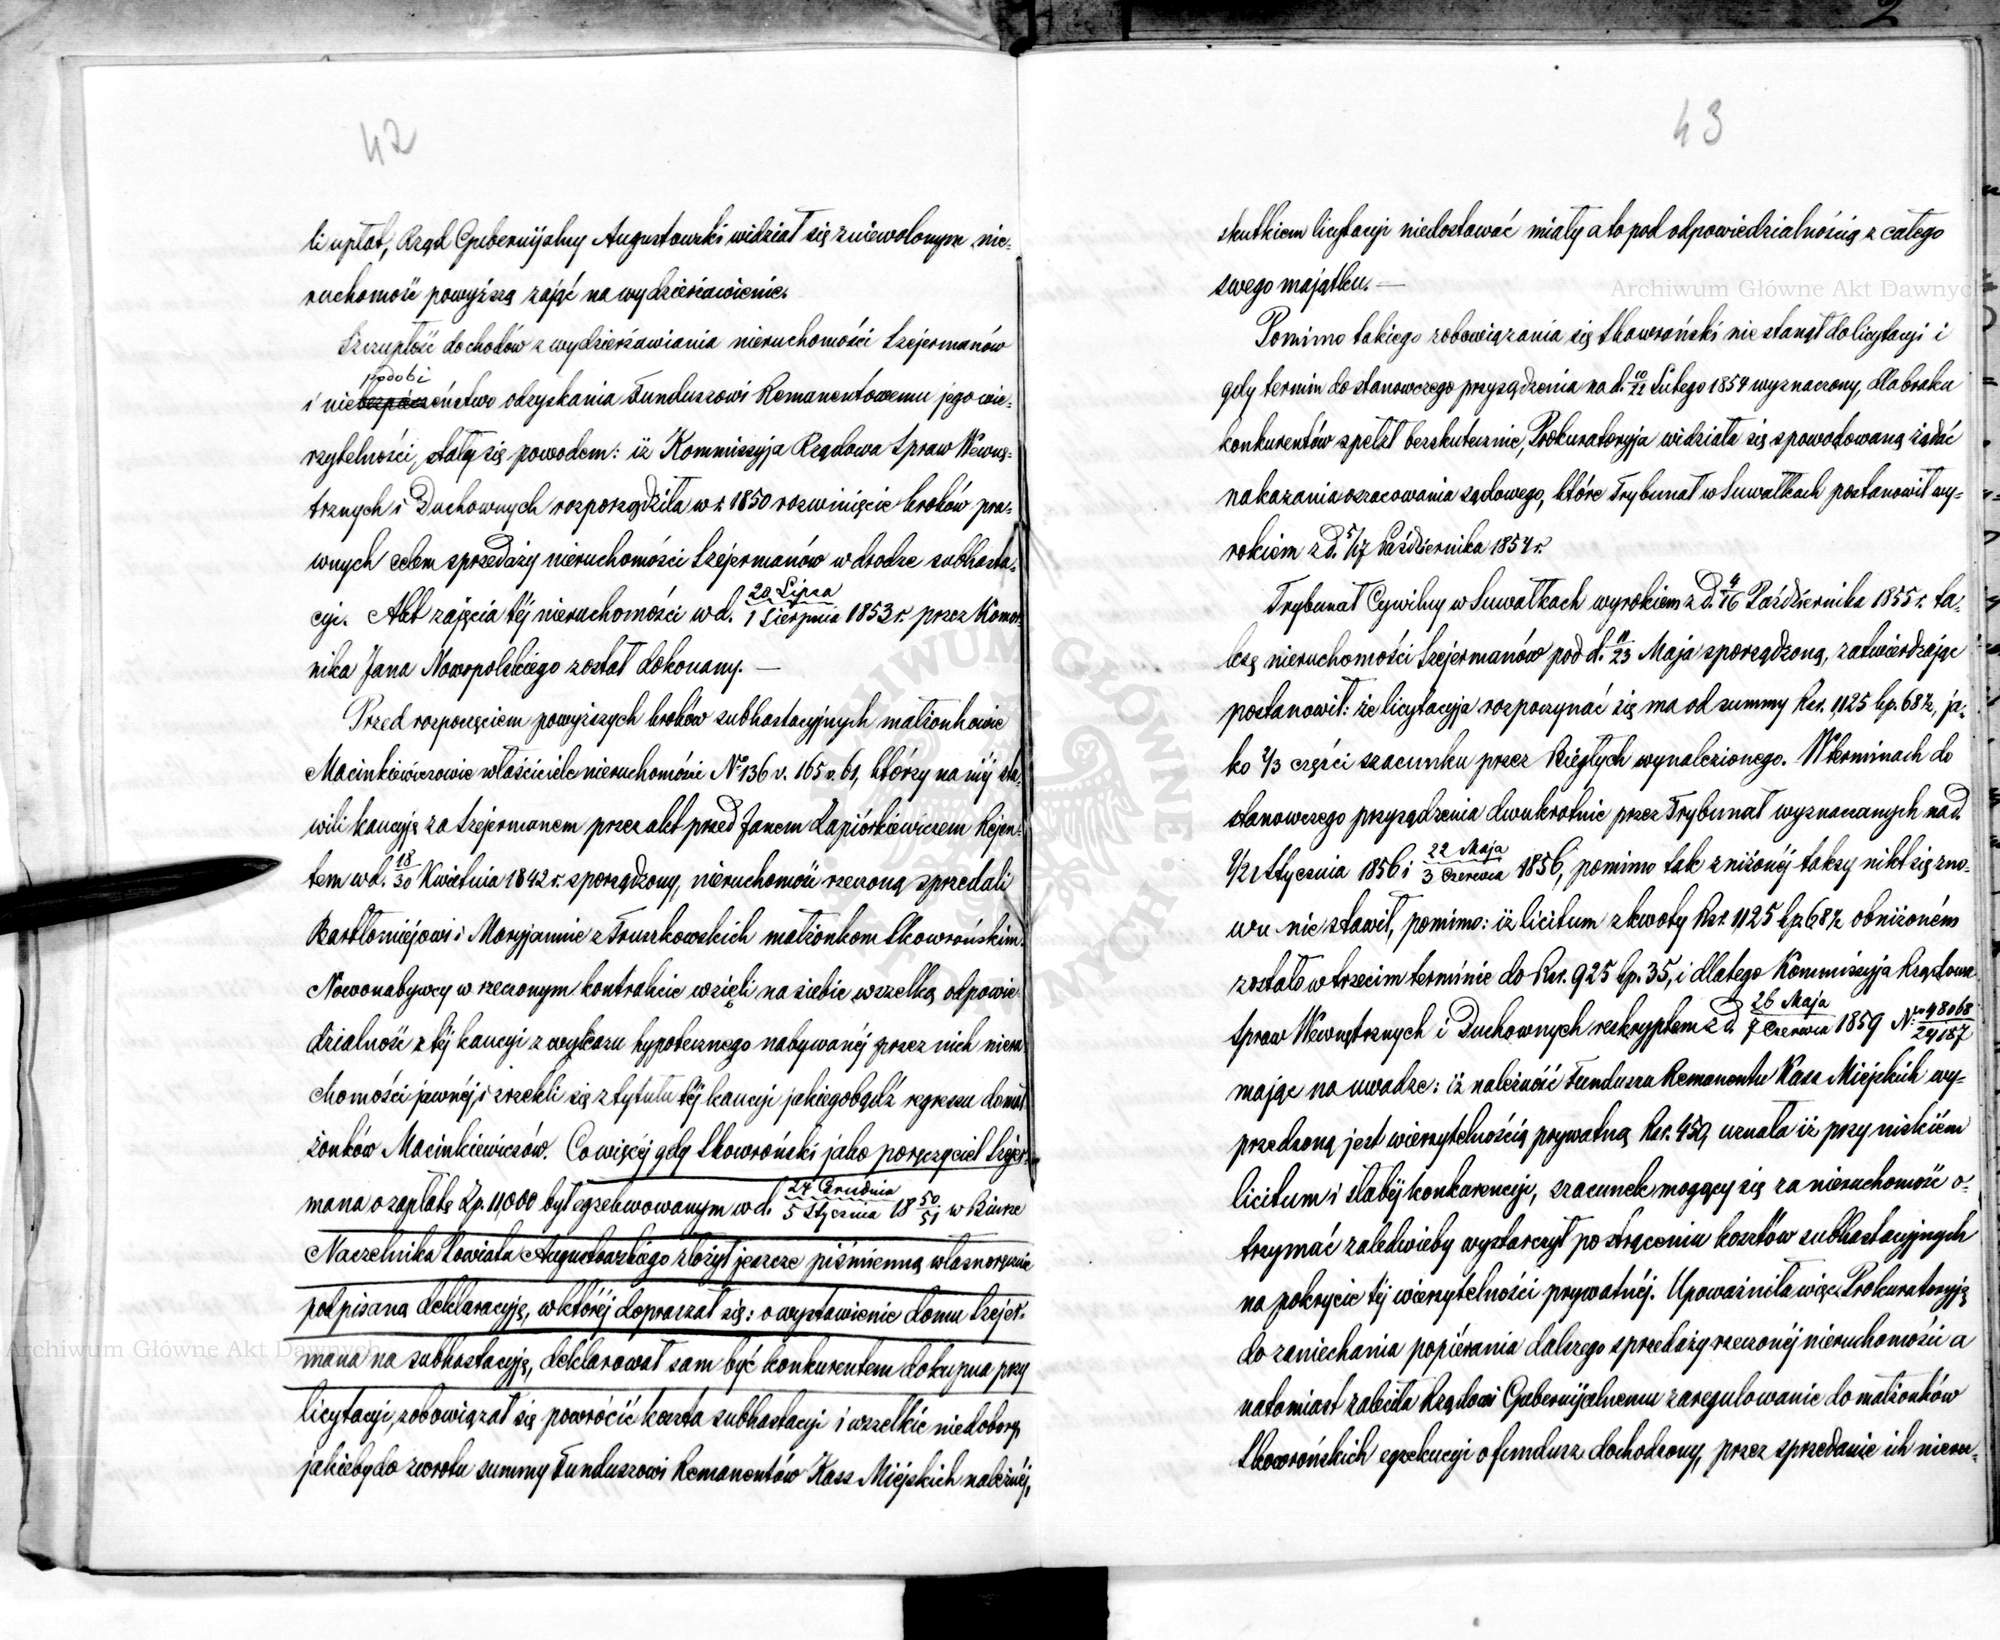 42
li upłat, Rząd Gubernijalny Augustowski widział się zniewolonym nie-
ruchomość powyższą zająć na wydzierżawienie.
Szczupłość dochodów z wydzierżawiania nieruchomości Szejermanów
podobi
i niebezpieczeństwo odzyskania Funduszowi Remanentowemu jego wie-
rzytelności, stały się powodem: iż Kommissyja Rządowa Spraw Wewnę-
trznych i Duchownych rozporządziła w r. 1850 rozwinięcie kroków pra-
wnych celem sprzedaży nieruchomości Szejermanów w drodze subhasta-
cyi. Akt zajęcia téj nieruchomości w d. 20 Lipca / 1 Sierpnia 1853 r. przez Komor-
nika Jana Nowopolskiego został dokonany. —
Przed rozpoczęciem powyższych kroków subhastacyjnych małżonkowie
Macinkiewiczowie właściciele nieruchomości No 136 v. 165 v. 61, którzy na niéj sta-
wili kaucyję za Szejermanem przez akt przed Janem Łapiórkiewiczem Rejen-
tem w d. 18/30 Kwietnia 1842 r. sporządzony, nieruchomość rzeczoną sprzedali
Bartłomiéjowi i Maryjannie z Truszkowskich małżonkom Skowrońskim.
Nowonabywcy w rzeczonym kontrakcie wzięli na siebie wszelką odpowie-
dzialność z téj kaucyi z wykazu hypotecznego nabywanéj przez nich nieru-
chomości jawnéj, i zrzekli się z tytułu téj kaucyi jakiegobądź regressu do mał-
żonków Macinkiewiczów. Co więcéj gdy Skowroński jako poręczyciel Szejer-
mana o zapłatę Zp. 11,000 był egzekwowanym w d. 24 Grudnia / 5 Stycznia 18 50/51 w Biurze
Naczelnika Powiatu Augustowskiego złożył jeszcze piśmienną własnoręcznie
potpisaną deklaracyję, w któréj dopraszał się: o wystawienie domu Szejer-
mana na subhastacyję, deklarował sam być konkurentem do kupna przy
licytacyi, zobowiązał się powrócić koszta subhastacyi i wszelkie niedobory,
jakieby do zwrotu summy Funduszowi Remanentów Kass Miéjskich należnéj,
43
skutkiem licytacyi niedostawać miały a to pod odpowiedzialnością z całego
swego majątku. —
Pomimo takiego zobowiązania się Skowroński nie stanął do licytacyi i
gdy termin do stanowczego przysądzenia na d. 10/22 Lutego 1854 wyznaczony, dla braku
konkurentów spełzł bezskutecznie, Prokuratoryja widziała się spowodowaną żądać
nakazania oszacowania sądowego, które Trybunał w Suwałkach postanowił wy-
rokiem z d. 5/17 Października 1854 r.
Trybunał Cywilny w Suwałkach wyrokiem z d. 4/16 Października 1855 r. ta-
ksę nieruchomości Szejermanów pod d. 11/23 Maja sporządzoną, zatwierdzając
postanowił: że licytacyja rozpoczynać się ma od summy Rsr. 1,125 kp. 68½, ja-
ko 2/3 części szacunku przez Biegłych wynalezionego. W terminach do
stanowczego przysądzenia dwukrotnie przez Trybunał wyznaczanych na d.
9/21 Stycznia 1856 i 22 Maja / 3 Czerwca 1856, pomimo tak zniżonéj taksy nikt się zno-
wu nie stawił, pomimo: iż licitum z kwoty Rsr. 1,125 kp. 68½ obniżoném
zostało w trzecim terminie do Rsr. 925 kp. 35, i dlatego Kommissyja Rządowa
Spraw Wewnętrznych i Duchownych reskryptem z d. 26 Maja / 7 Czerwca 1859 No 48068/24187
mając na uwadze: iż należność Funduszu Remanentu Kass Miejskich wy-
przedzoną jest wierzytelnością prywatną Rsr. 450, uznała iż przy niskiém
licitum i słabéj konkurencyi, szacunek mogący się za nieruchomość o-
trzymać zaledwieby wystarczył po strąceniu kosztów subhastacyjnych
na pokrycie téj wierzytelności prywatnéj. Upoważniła więc Prokuratoryję
do zaniechania popiérania dalszego sprzedaży rzeczonéj nieruchomości a
natomiast zaleciła Rządowi Gubernijalnemu zaregulowanie do małżonków
Skowrońskich egzekucyi o fundusz dochodzony, przez sprzedanie ich nieru-
Archiwum Główne Akt Dawnych
Archiwum Główne Akt Dawnych
ARCHIWUM GŁÓWNE AKT DAWNYCH